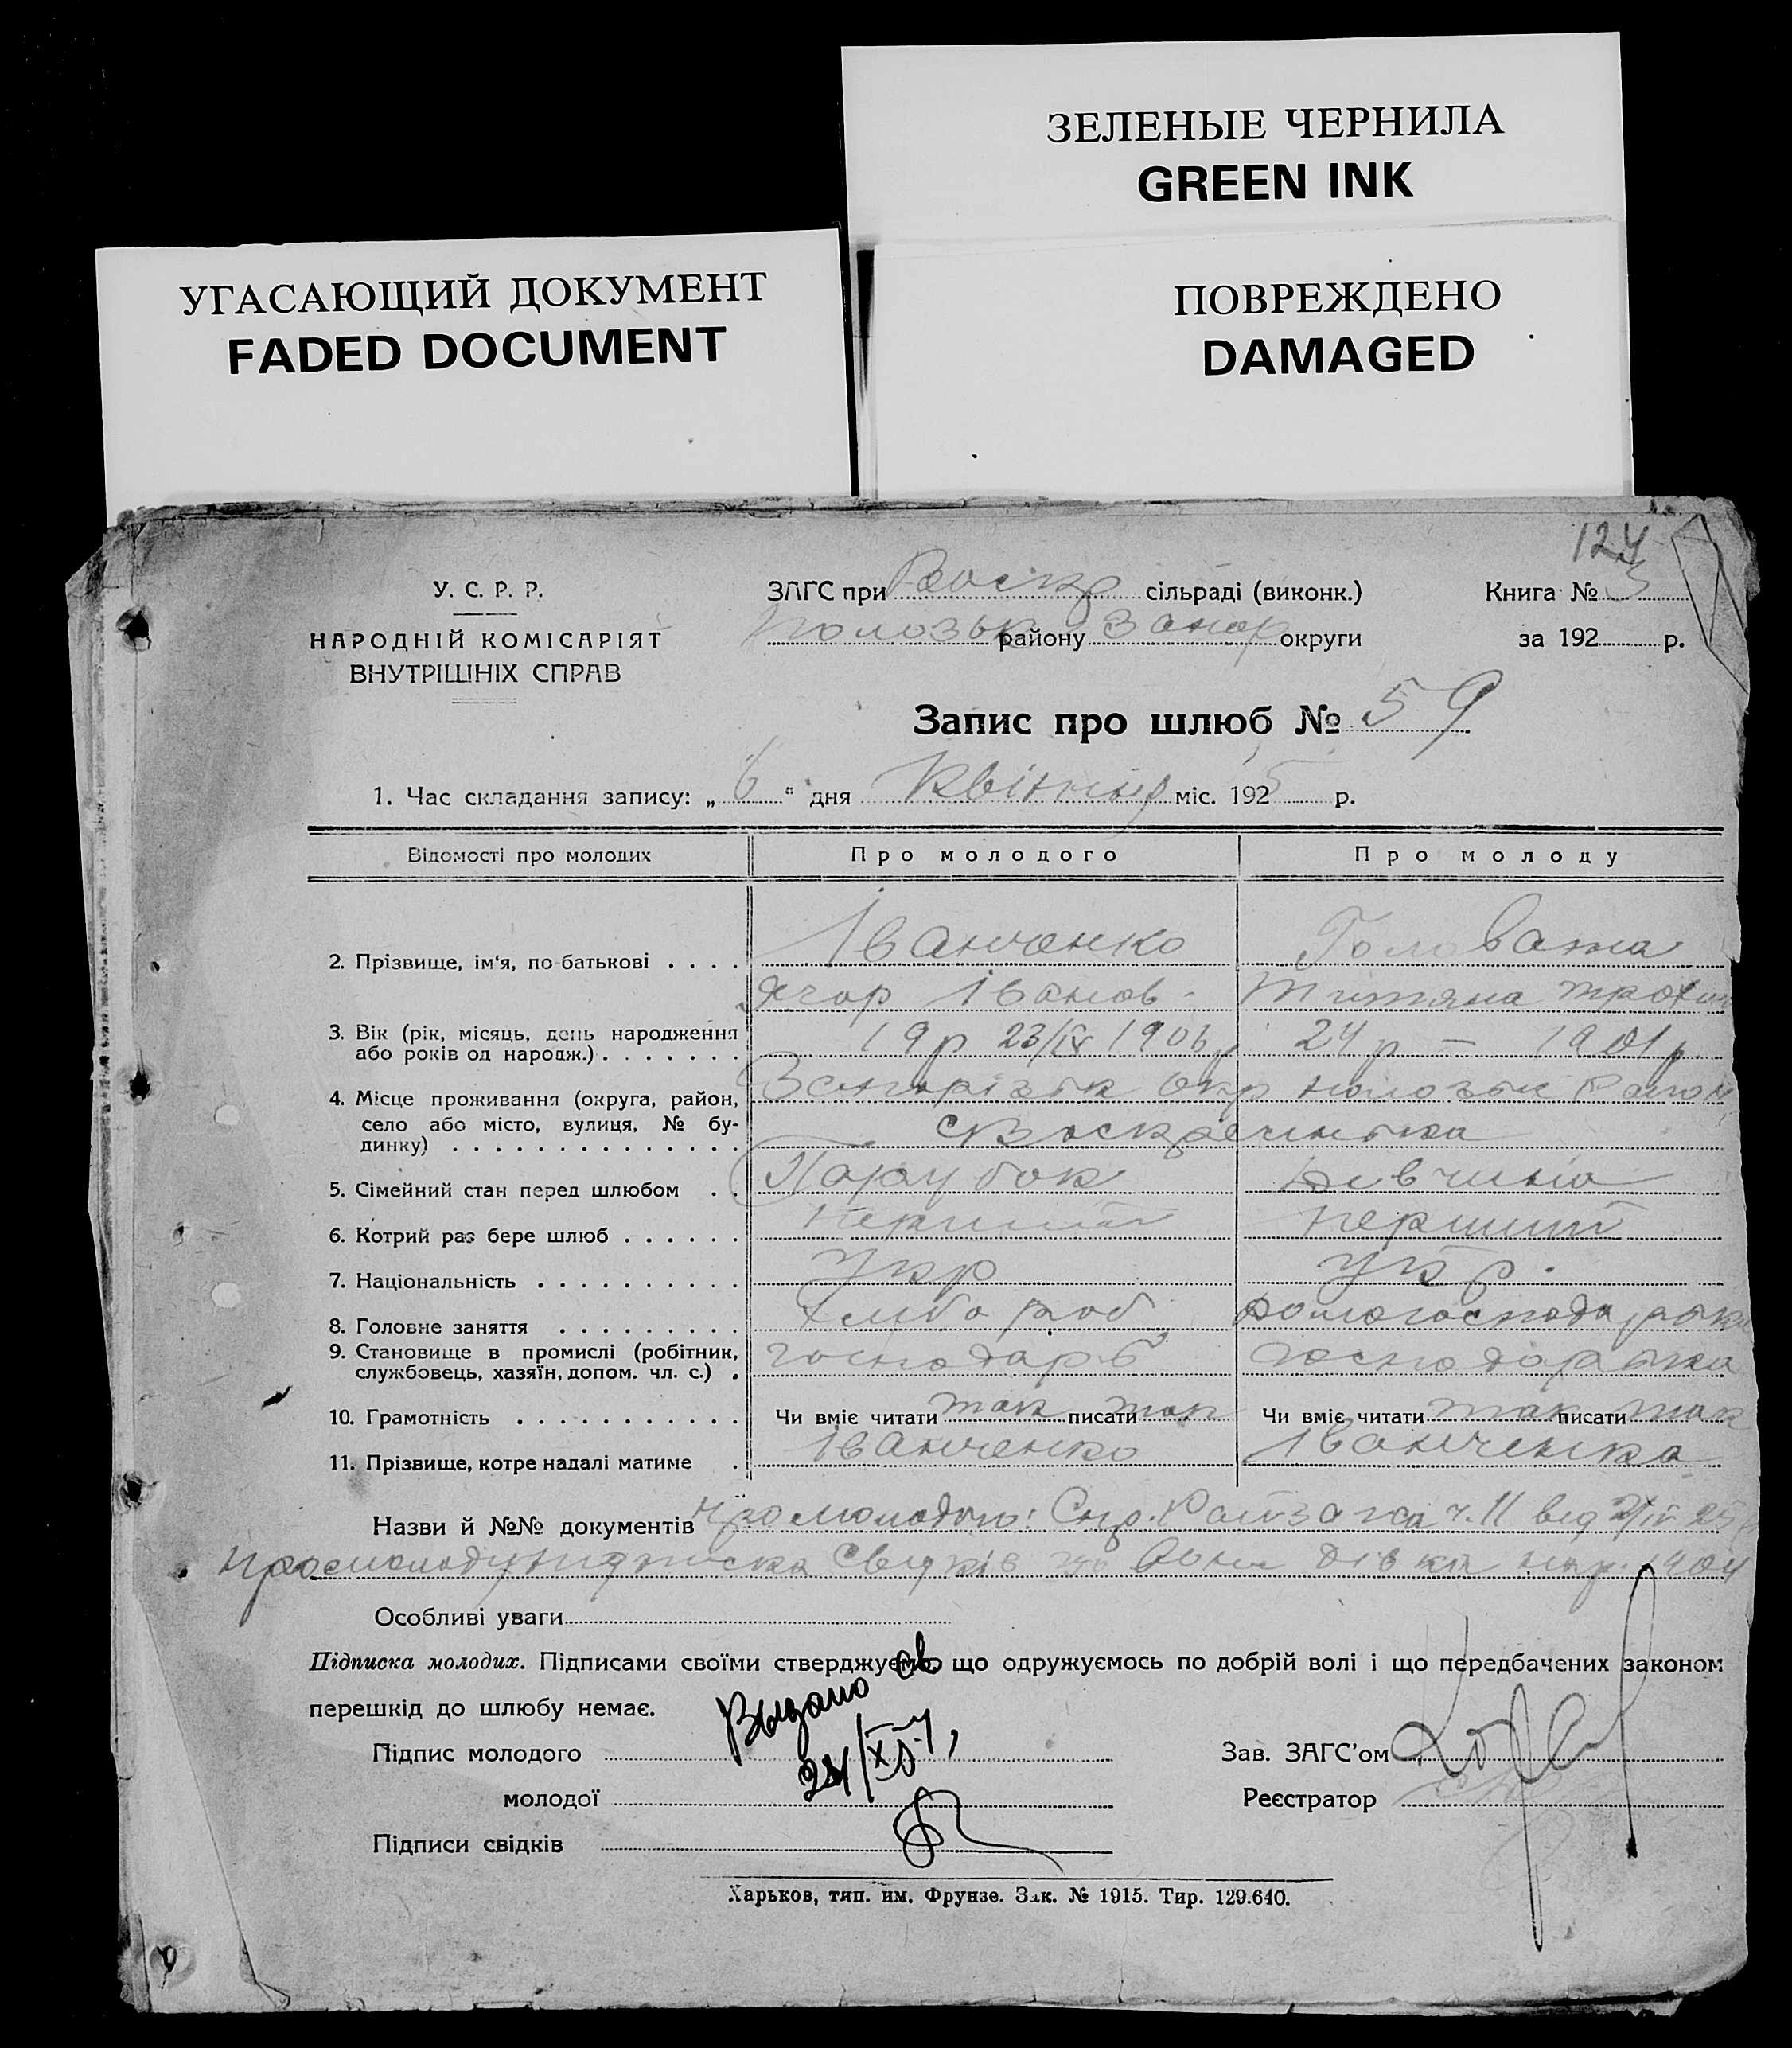 ЗЕЛЕНЫЕ ЧЕРНИЛА
GREEN INK
УГАСАЮЩИЙ ДОКУМЕНТ
FADED DOCUMENT
ПОВРЕЖДЕНО
DAMAGED
124
У. С. Р. Р.
НАРОДНІЙ КОМІСАРІЯТ
ВНУТРІШНІХ СПРАВ
ЗАГС при Воскр сільраді (виконк.)
Полозьк району Запор округи
Книга № 3
за 192 р.
Запис про шлюб № 59
1. Час складання запису: „ 6 " дня Квітня міс. 1925 р.
Відомості про молодих Про молодого Про молоду
2. Прізвище, ім'я, по-батькові . . . . Іванченко Головата
Ягор Іванов- Титяна Трохим
3. Вік (рік, місяць, день народження або років од народж.) . . . . . . . 19р 23/IV 1906 24 р — 1901 р.
4. Місце проживання (округа, район, село або місто, вулиця, № будинку) . . . . . . . . . . . . . . Запорізьк окр Полозьк Район
с Воскресинька
5. Сімейний стан перед шлюбом . . Парубок Дівчина
6. Котрий раз бере шлюб . . . . . . перший перший
7. Національність . . . . . . . . . . Укр Укр.
8. Головне заняття . . . . . . . . . хлібороб домогосподарька
9. Становище в промислі (робітник, службовець, хазяїн, допом. чл. с.) . господарь господарька
10. Грамотність . . . . . . . . . . . Чи вміє читати так писати так Чи вміє читати так писати так
11. Прізвище, котре надалі матиме . Іванченко Іванченка
Назви й №№ документів про молодого: Спр. ч. 11 від 25
про молоду підписка свідків що вона дівка нар.
Особливі уваги
Підписка молодих. Підписами своїми стверджуємо, що одружуємось по добрій волі і що передбачених законом
перешкід до шлюбу немає.
Выдано св.
24/XI
Підпис молодого
Зав. ЗАГС'ом
молодої
Реєстратор
Підписи свідків
Харьков, тип. им. Фрунзе. Зак. № 1915. Тир. 129.640.